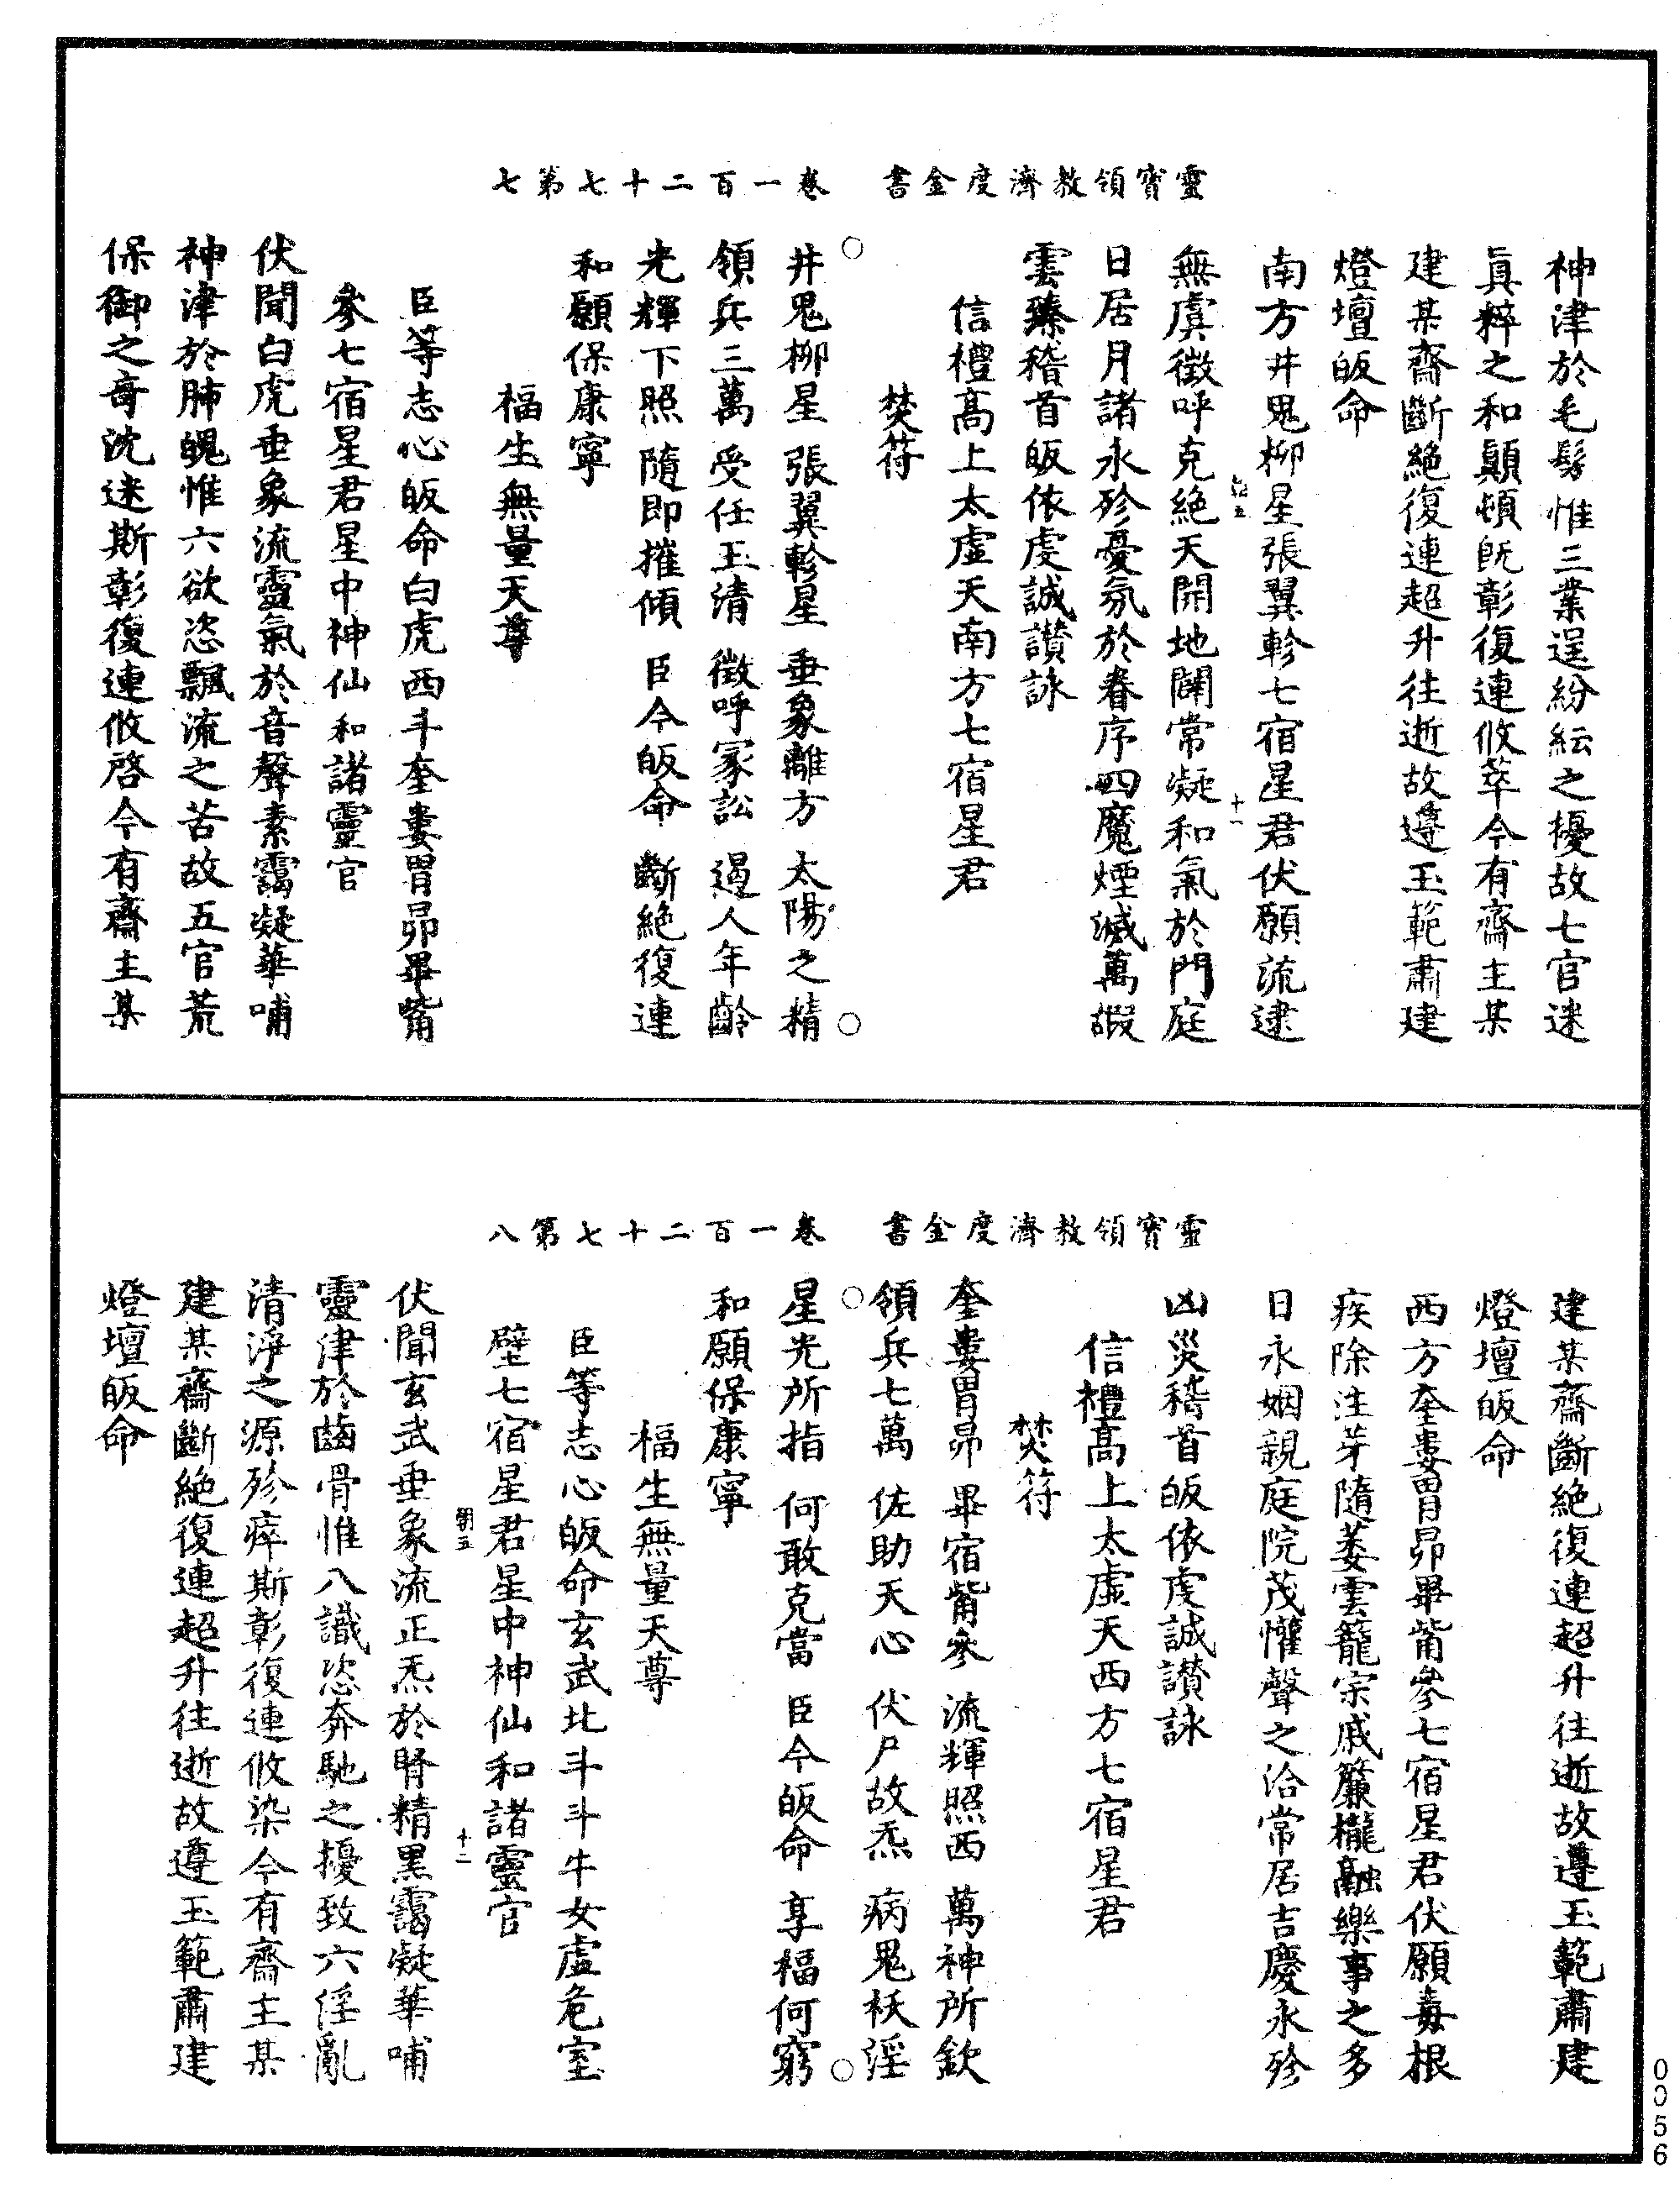 靈寳領教濟度金書　卷一百二十七第七
神津於毛髮惟三業逞紛紜之擾故七官迷
眞粹之和顛頓旣彰復連攸萃今有齋主某
建某齋斷絕復連超升往逝故遵玉範肅建
燈壇皈命
南方井鬼柳星張翼軫七宿星君伏願流逮
十一
無虞徵呼克絕天開地闢常凝和氣於門庭
日居月諸永殄憂氛於眷序四魔煙滅萬嘏
雲臻稽首皈依虔誠讃詠
信禮高上太虛天南方七宿星君
焚符
○井鬼柳星　張翼軫星　垂象離方　太陽之精○
領兵三萬　受任玉清　徵呼冢訟　遏人年齡
光輝下照　隨即摧傾　臣今皈命　斷絕復連
和願保康寧
福生無量天尊
臣等志心皈命白虎西斗奎婁胃昴畢觜
參七宿星君星中神仙和諸靈官
伏聞白虎垂象流靈氣於音聲素靄凝華哺
神津於肺魄惟六欲恣飄流之苦故五官荒
保御之奇沈迷斯彰復連攸啓今有齋主某
靈寳領教濟度金書　卷一百二十七第八
建某齋斷絕復連超升往逝故遵玉範肅建
燈壇皈命
西方奎婁胃昴畢觜參七宿星君伏願毒根
疾除注芽隨萎雲籠宗戚簾櫳融樂事之多
日永姻親庭院茂懽聲之洽常居吉慶永殄
凶災稽首皈依虔誠讃詠
信禮高上太虛天西方七宿星君
焚符
奎婁胃昴　畢宿觜參　流輝照西　萬神所欽
領兵七萬　佐助天心　伏尸故炁　病鬼袄淫
○星光所指　何敢克當　臣今皈命　享福何窮○
和願保康寧
福生無量天尊
臣等志心皈命玄武北斗斗牛女虛危室
壁七宿星君星中神仙和諸靈官
十二
伏聞玄武垂象流正炁於腎精黑靄凝華哺
靈津於齒骨惟八識恣奔馳之擾致六淫亂
清淨之源殄瘁斯彰復連攸染今有齋主某
建某齋斷絕復連超升往逝故遵玉範肅建
燈壇皈命
0056